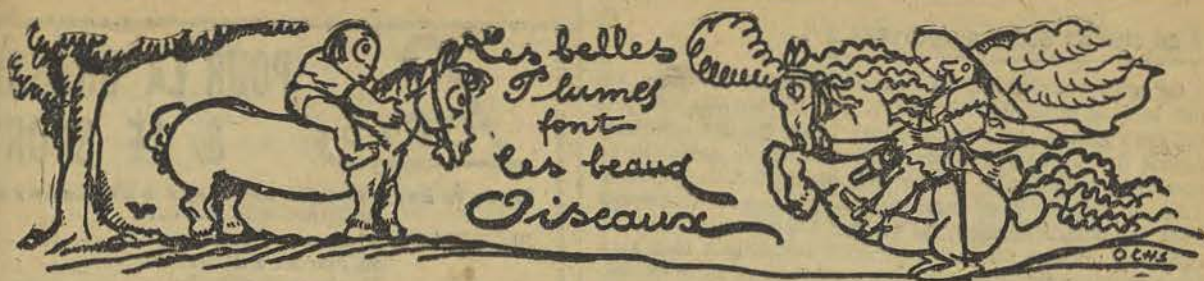 Les belles
Plumes
font
les beaux
Oiseaux
OCHS